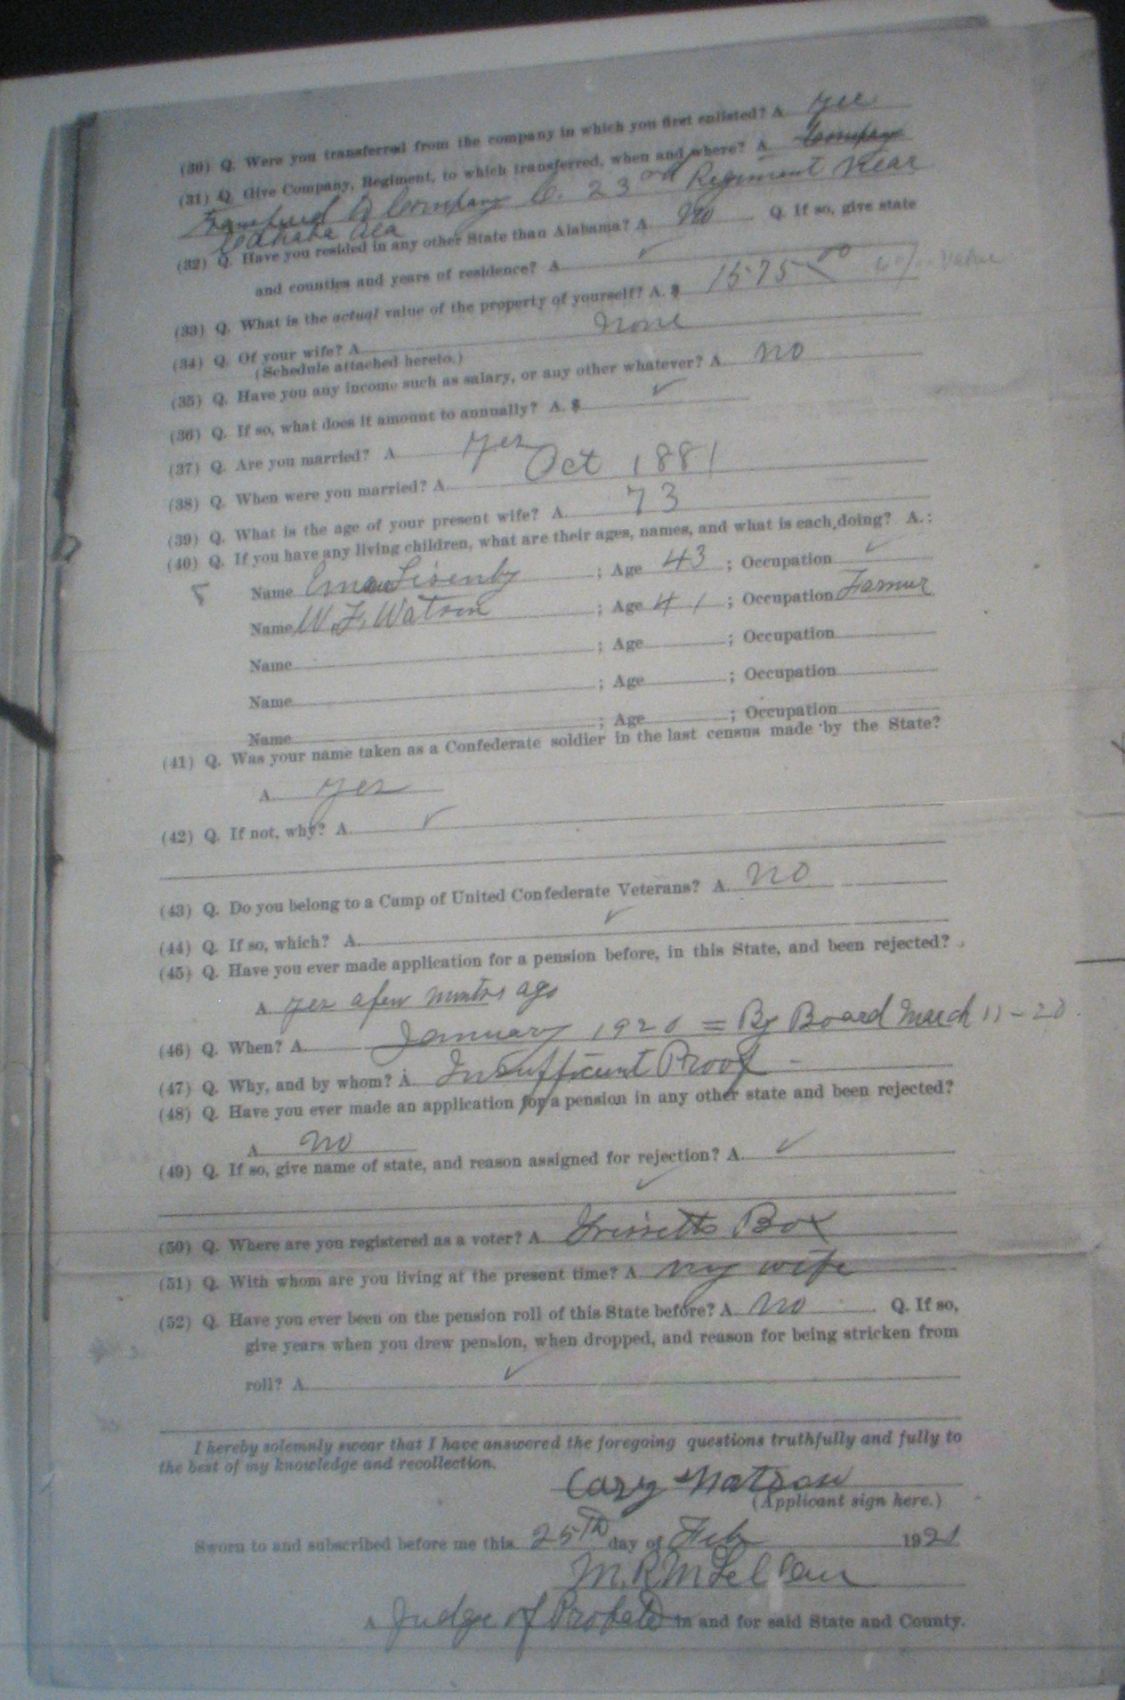 (30) Q. Were you transferred from the company in which you first enlisted? A. yes
(31) Q. Give Company, Regiment, to which transferred, when and where? A. Company
Transfered to Company C. 23rd Regiment near
Cahaba Ala
(32) Q. Have you resided in any other State than Alabama? A. No Q. If so, give state
and counties and years of residence? A. ✓
(33) Q. What is the actual value of the property of yourself? A. $ 1575 00 value
(34) Q. Of your wife? A. none
(Schedule attached hereto.)
(35) Q. Have you any income such as salary, or any other whatever? A. no
(36) Q. If so, what does it amount to annually? A. $ ✓
(37) Q. Are you married? A. yes
(38) Q. When were you married? A. Oct 1881
(39) Q. What is the age of your present wife? A. 73
(40) Q. If you have any living children, what are their ages, names, and what is each doing? A.:
Name Lisenby ; Age 43 ; Occupation ✓
Name W. F. Watson ; Age 41 ; Occupation Farmer
Name ; Age ; Occupation
Name ; Age ; Occupation
Name ; Age ; Occupation
(41) Q. Was your name taken as a Confederate soldier in the last census made by the State?
A. yes
(42) Q. If not, why? A. ✓
(43) Q. Do you belong to a Camp of United Confederate Veterans? A. no
(44) Q. If so, which? A. ✓
(45) Q. Have you ever made application for a pension before, in this State, and been rejected?
A. yes a few months ago
(46) Q. When? A. January 1920 = By Board March 11-20
(47) Q. Why, and by whom? A. Insufficient Proof -
(48) Q. Have you ever made an application for a pension in any other state and been rejected?
A. no
(49) Q. If so, give name of state, and reason assigned for rejection? A. ✓
✓
(50) Q. Where are you registered as a voter? A. Box
(51) Q. With whom are you living at the present time? A. my wife
(52) Q. Have you ever been on the pension roll of this State before? A. no Q. If so,
give years when you drew pension, when dropped, and reason for being stricken from
roll? A. ✓
I hereby solemnly swear that I have answered the foregoing questions truthfully and fully to
the best of my knowledge and recollection.
Cary Watson
(Applicant sign here.)
Sworn to and subscribed before me this 25th day of Feb 1921
M. R. McLellan
A Judge of Probate in and for said State and County.